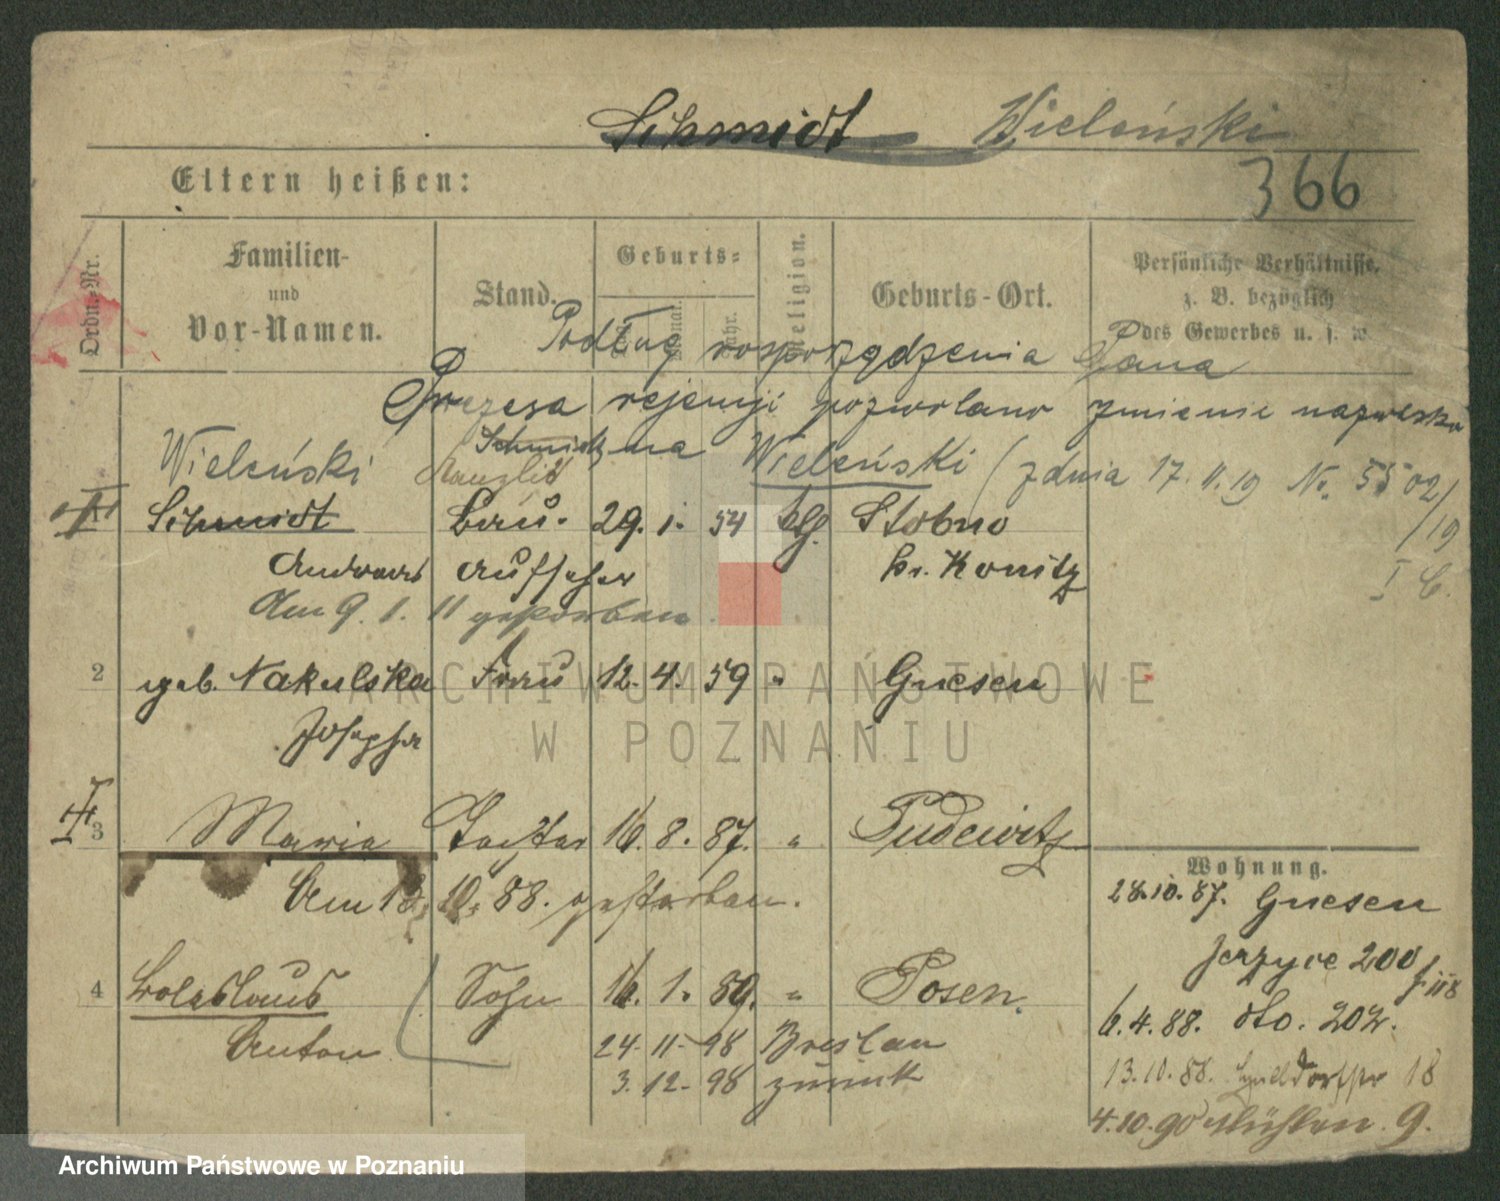 Schmidt Wieleński
Eltern heißen:
366
Ordn.-Nr.
Familien-
und
Vor-Namen.
Stand.
Geburts-
Monat.
Jahr.
Religion.
Geburts-Ort.
Persönliche Verhältnisse,
z. B. bezüglich
des Gewerbes u. s. w.
Podług rosporządzenia Pana
Prezesa rejencji pozwolano zmienie nazwisko
Schmidt na Wieleński (z dnia 17.11.19 No. 5502/
/19
I C.
Wieleński Kanzlist
Schmidt Bau- 29. 1. 54 Stobno
Andreas Aufseher Kr. Konitz
Am 9. 1. 11 gestorben
2 geb. Nakulska Frau 12. 4. 59 " Gnesen
Josepha
3 Maria Tochter 16. 8. 87. " Pudewitz
Am 18. 10. 88. gestorben.
4 Boleslaus Sohn 16. 1. 89. " Posen.
Anton
24. 11. 98 Breslau
3. 12. 98 zurück
Wohnung.
28.10.87. Gnesen
Jerzyce 200
6.4.88. dto. 202.
13.10.88. 18
4.10.90 Mühlen. 9.
ARCHIWUM PAŃSTWOWE
W POZNANIU
Archiwum Państwowe w Poznaniu